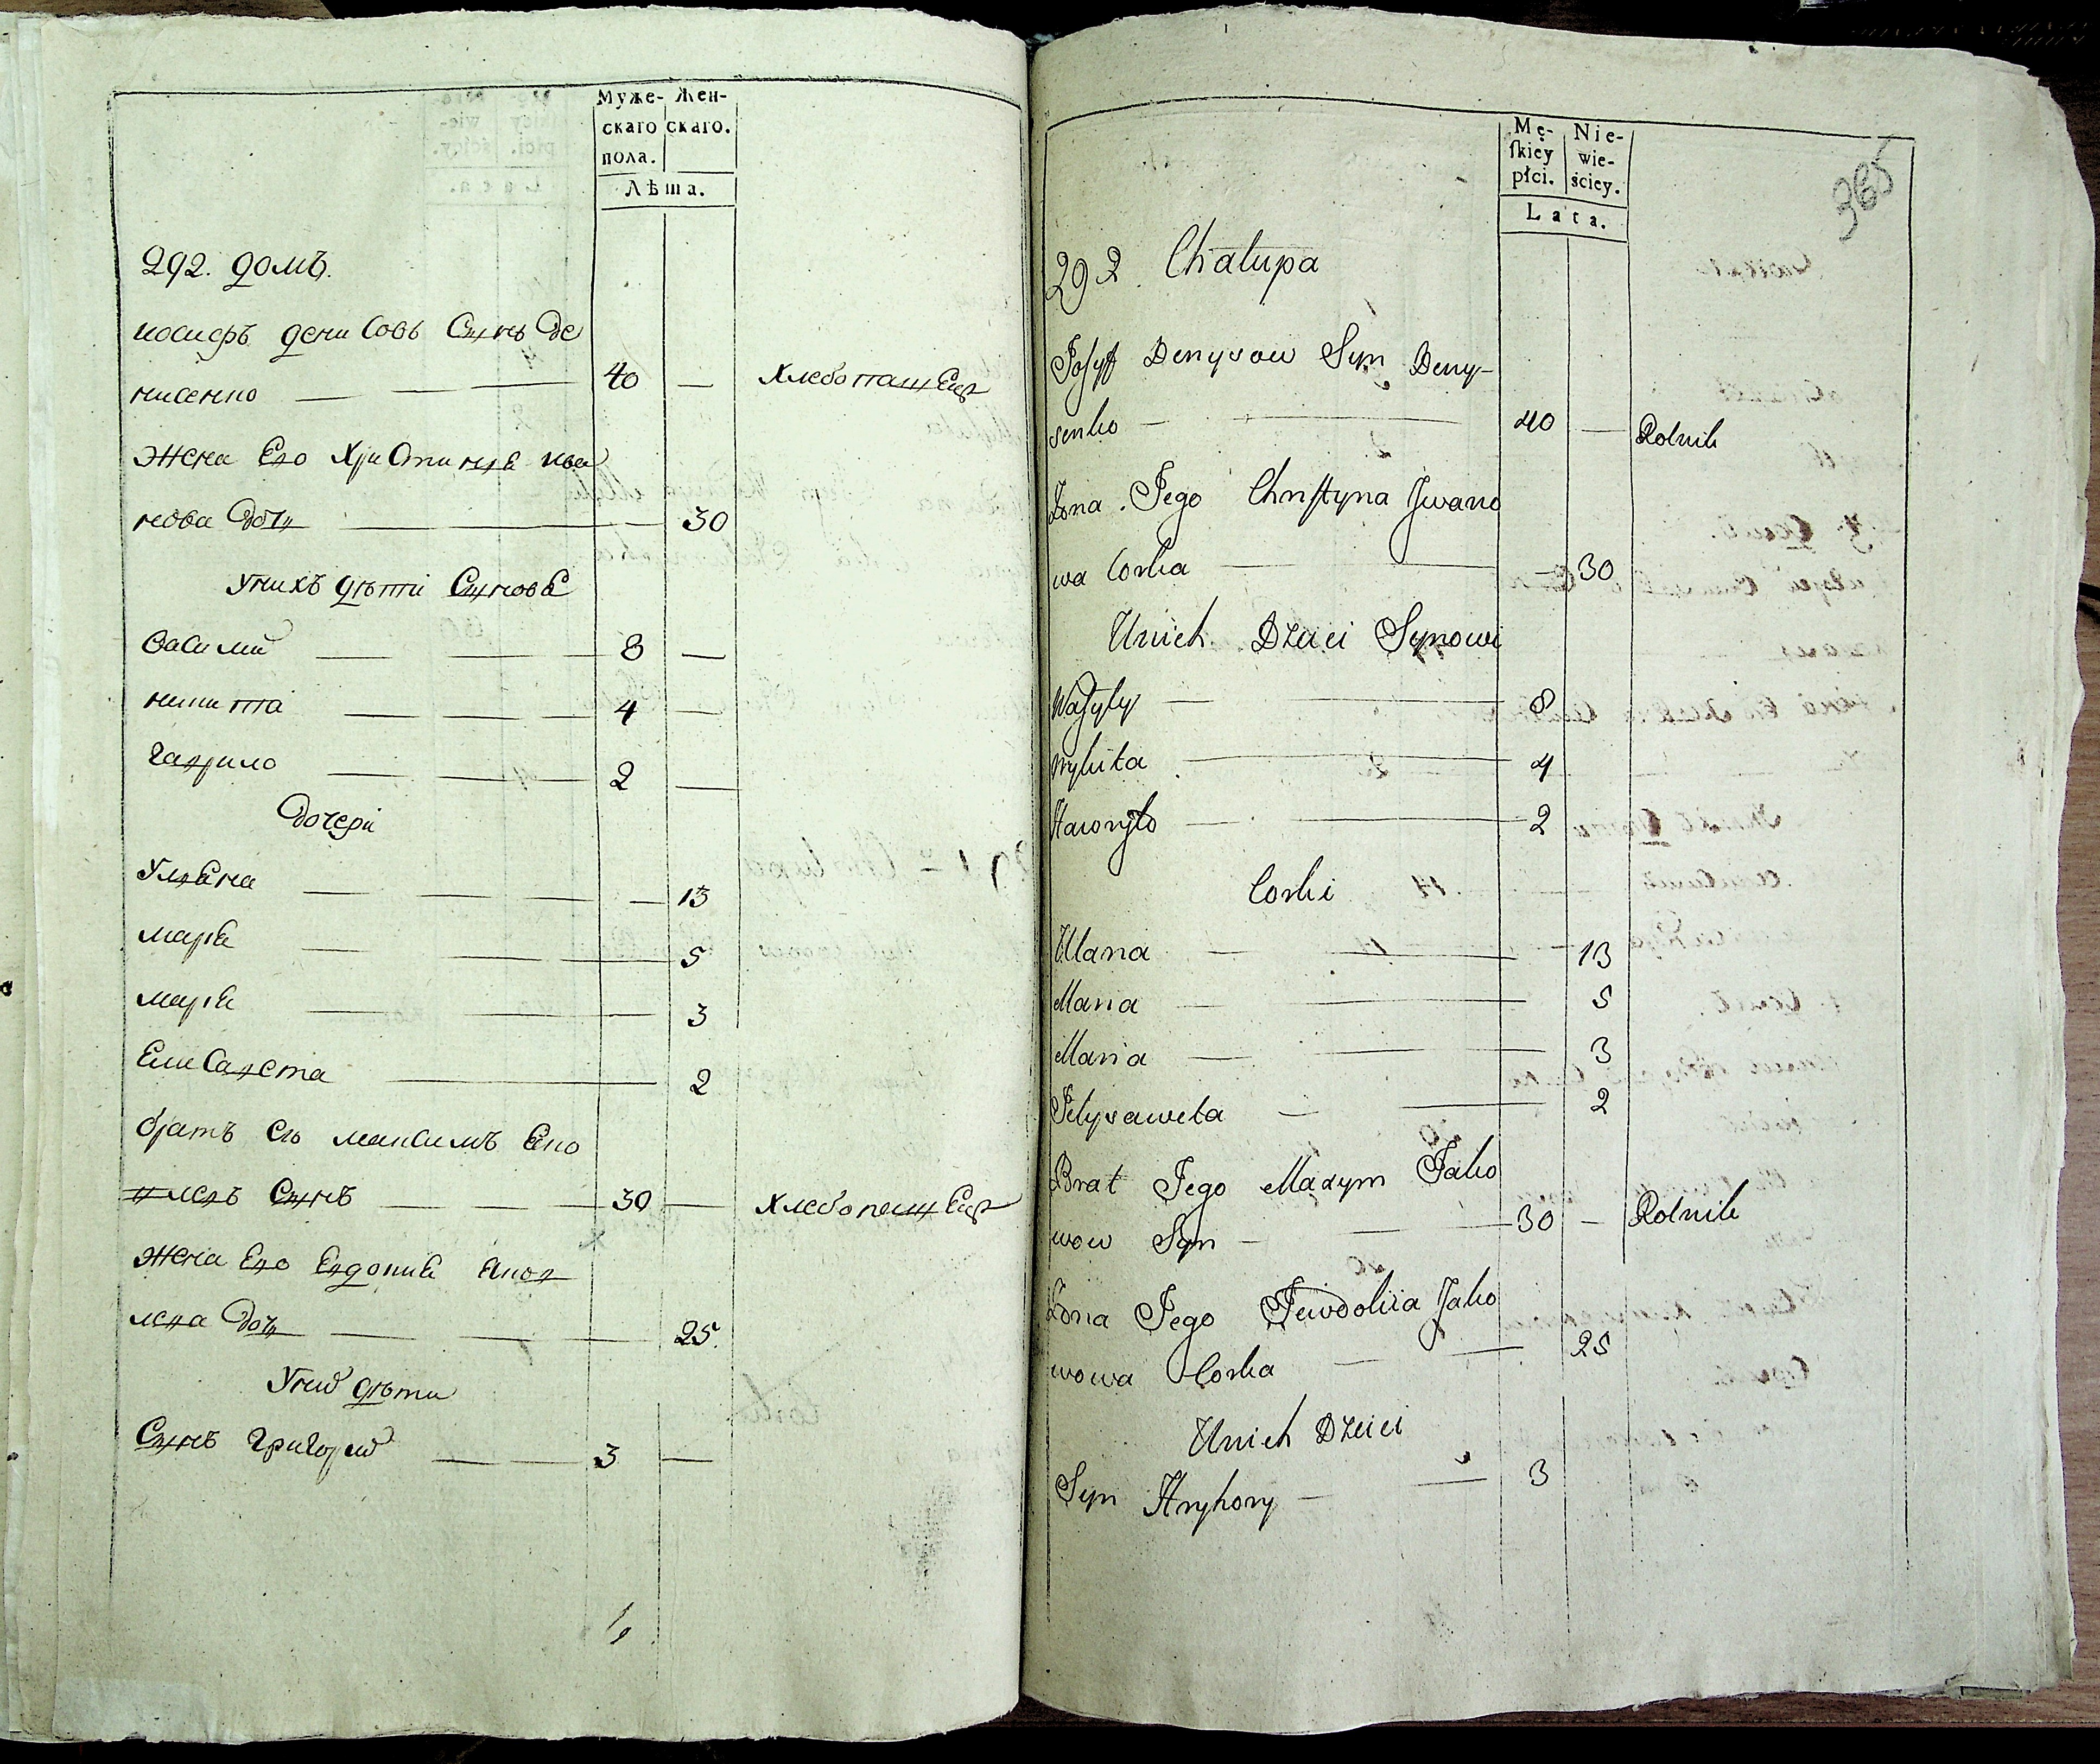 Муже- Жен-
скаго скаго.
пола.
Лѣта.
292. домъ.
иосифъ денисовъ Сынъ Де
нисенко — — — 40 — хлебопашец
жена Его Христиния ива
нова Дочь — — 30
Унихъ дѣти Сыновя
василий — — — 8 —
никита — — — 4 —
гаврило — — — 2 —
Дочери
Уляна — — — — 13
мария — — 5
мария — — 3
Елисавета — 2
братъ его максимъ Яко
влевъ Сынъ — — — 30 — хлебопашец
жена Его Евдокия Яков
лева Дочь — — — 25.
Унихъ дѣти
Сынъ григорий — — 3 —
Mę- Nie-
ſkiey wie-
płci. ściey.
Lata.
365
292. Chalupa
Jozyf Denysow Syn Deny-
senko — — 40 — Rolnik
Żona Jego Chrystyna Jwano
wa Corka — — — 30
Unich Dzieci Synowi
Wasyly — — 8
Mykita — 4
Hawryło — — 2
Corki
Ulana — — — 13
Maria — — 5
Maria — — 3
Jelysaweta — — 2
Brat Jego Maxym Jako
wow Syn — — 30 — Rolnik
Żona Jego Jewdokia Jako
wowa Corka — — 25
Unich Dzieci
Syn Hryhory — — 3